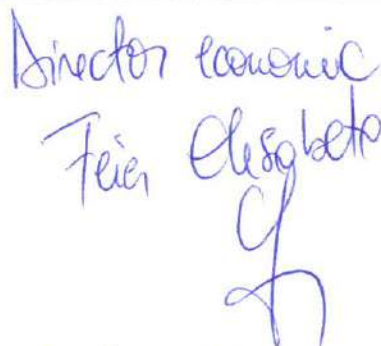 Director economic
Feier Elisabeta